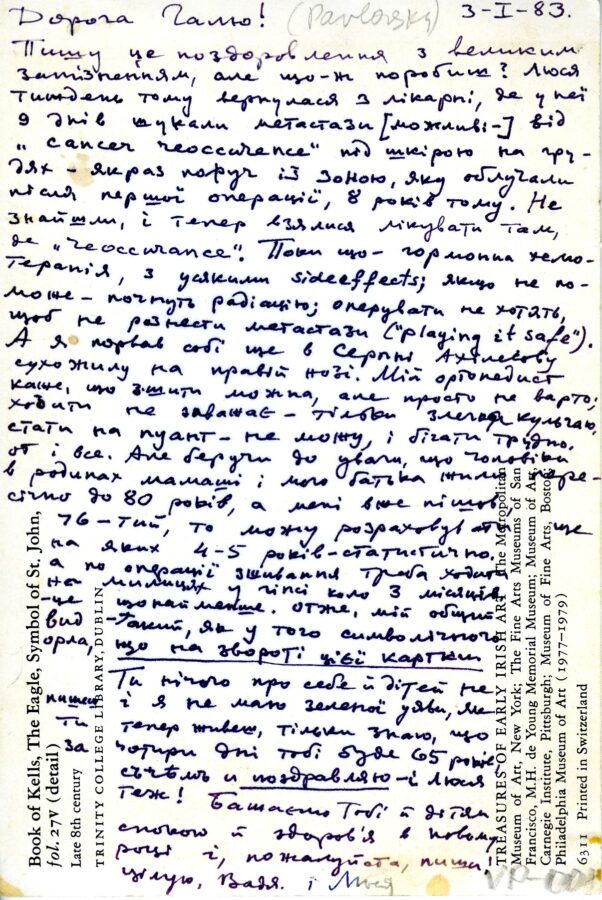 Дорога Галю! (Pavlovsky) 3-I-83.
Пишу це поздоровлення з великим
запізненням, але що-ж поробиш? Люся
тиждень тому вернулася з лікарні, де у неї
9 днів шукали метастази [можливі-] від
„cancer reoccurence" під шкірою на гру-
дях - якраз поруч із зоною, яку облучали
після першої операції, 8 років тому. Не
знайшли, і тепер взялися лікувати там,
де „reoccurance". Поки що - гормонна хемо-
терапія, з усякими sideeffects; якщо не по-
може - почнуть радіацію; оперувати не хотять,
щоб не рознести метастази ("playing it safe").
А я порвав собі ще в Серпні Ахілесову
сухожилу на правій нозі. Мій ортопедист
каже, що зшити можна, але просто не варто;
ходити не заважає - тільки злегка кульгаю,
стати на пуант - не можу, і бігати трудно.
от і все. Але беручи до уваги, що чоловіки
в родинах мамаші і мого батька жили пере-
січно до 80 років, а мені вже пішов
76-тий, то можу розраховувати ще
на яких 4-5 років - статистично.
а по операції зшивання треба ходити
на милицях у гіпсі коло 3 місяців
-це щонайменше. Отже, мій общий
вид - такий, як у того символічного
орла, що на звороті цієї картки
Ти нічого про себе й дітей не
пишеш і я не маю зеленої уяви, як
ти тепер живеш, тільки знаю, що
за чотири дні тобі буде 65 років
съчѣмъ и поздравляю - і Люся
теж! Бажаємо Тобі й дітям
спокою й здоров'я в новому
році і, пожалуйста, пиши!
Цілую, Вадя. і Люся
VP-001
Book of Kells, The Eagle, Symbol of St. John,
fol. 27V (detail)
Late 8th century
TRINITY COLLEGE LIBRARY, DUBLIN
TREASURES OF EARLY IRISH ART (The Metropolitan
Museum of Art, New York; The Fine Arts Museums of San
Francisco, M.H. de Young Memorial Museum; Museum of Art,
Carnegie Institute, Pittsburgh; Museum of Fine Arts, Boston;
Philadelphia Museum of Art (1977–1979)
6311 Printed in Switzerland